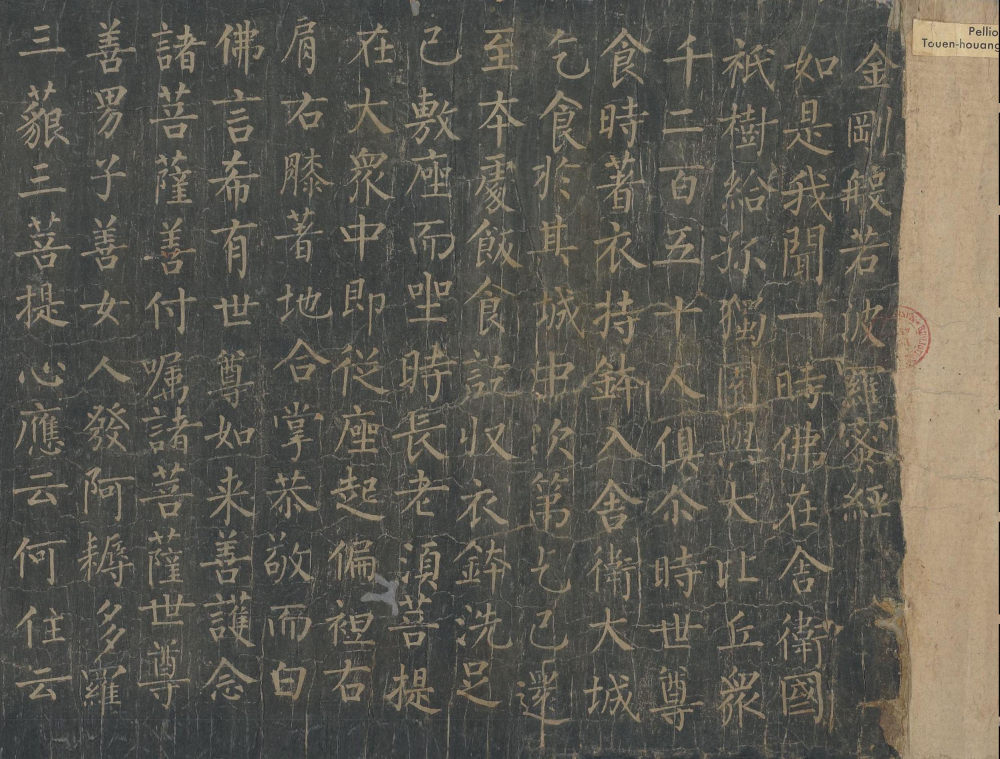 金剛般若波羅蜜經
如是我聞一時佛在舍衛國
祇樹給孤獨園與大比丘衆
千二百五十人俱尒時世尊
食時著衣持鉢入舍衛大城
乞食於其城中次第乞已還
至本處飯食訖収衣鉢洗足
已敷座而坐時長老須菩提
在大衆中即從座起偏袒右
肩右膝著地合掌恭敬而白
佛言希有世尊如来善護念
諸菩薩善付嘱諸菩薩世尊
善男子善女人發阿耨多羅
三藐三菩提心應云何住云
Pellio
Touen-houang